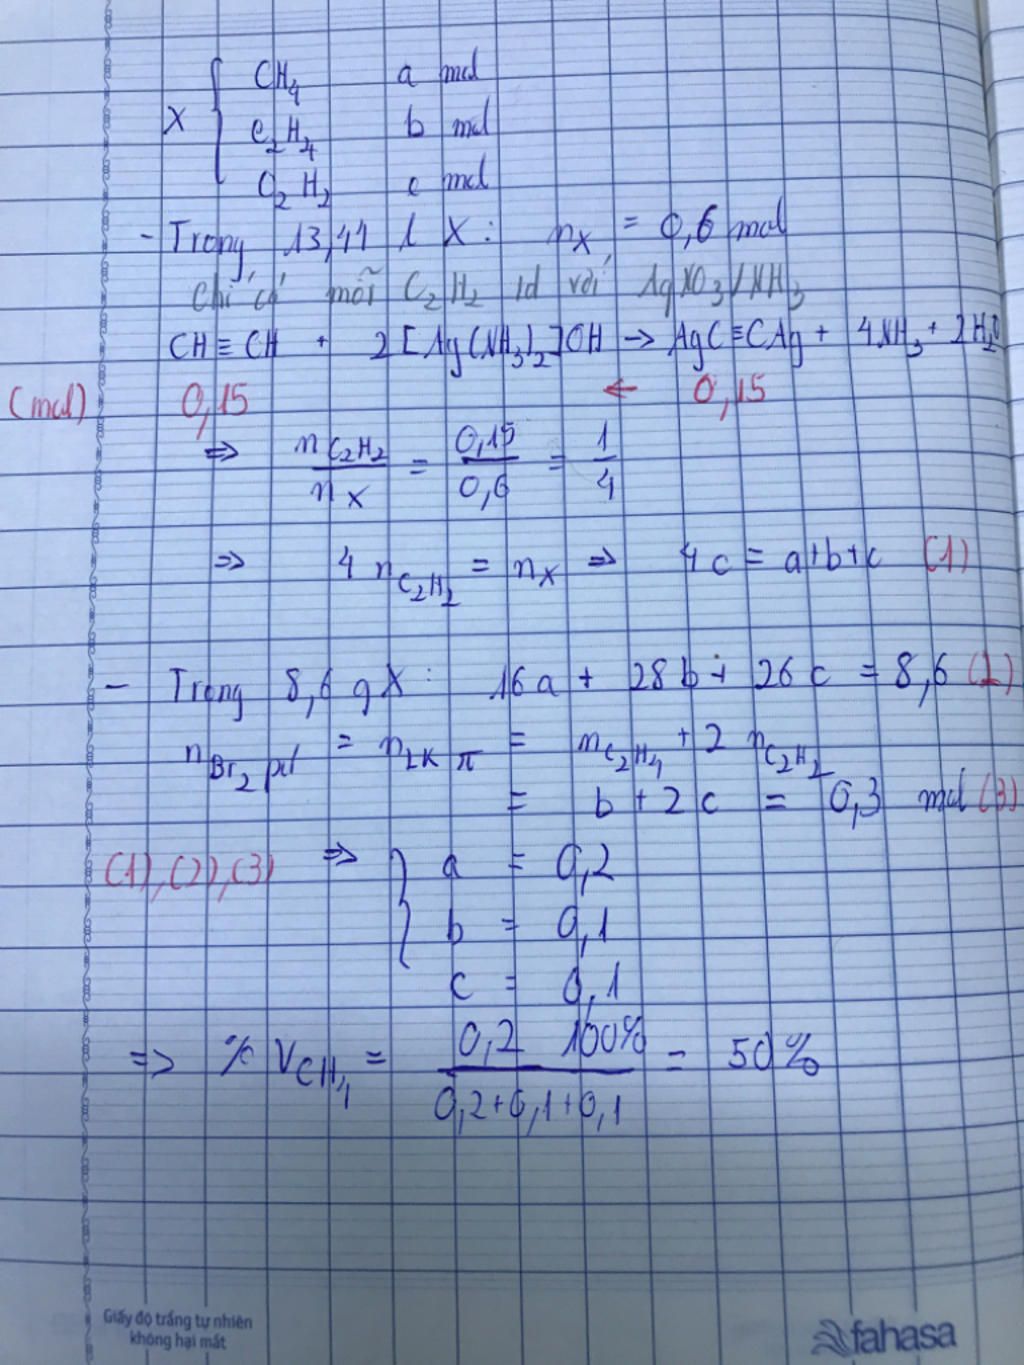 X { CH₄ a mol
C₂H₄ b mol
C₂H₂ c mol
- Trong 13,44 l X: nₓ = 0,6 mol
Chỉ có mỗi C₂H₂ td với AgNO₃/NH₃
CH≡CH + 2[Ag(NH₃)₂]OH → AgC≡CAg + 4NH₃ + 2H₂O
(mol) 0,15 ← 0,15
⇒ n C₂H₂ / n X = 0,15 / 0,6 = 1 / 4
⇒ 4 n C₂H₂ = nX ⇒ 4c = a+b+c (1)
- Trong 8,6 g X: 16a + 28b + 26c = 8,6 (2)
n Br₂ pư = n LK π = n C₂H₄ + 2 n C₂H₂
= b + 2c = 0,3 mol (3)
(1),(2),(3) ⇒ { a = 0,2
b = 0,1
c = 0,1
⇒ % V CH₄ = 0,2 100% / 0,2+0,1+0,1 = 50%
Giấy độ trắng tự nhiên
không hại mắt
fahasa